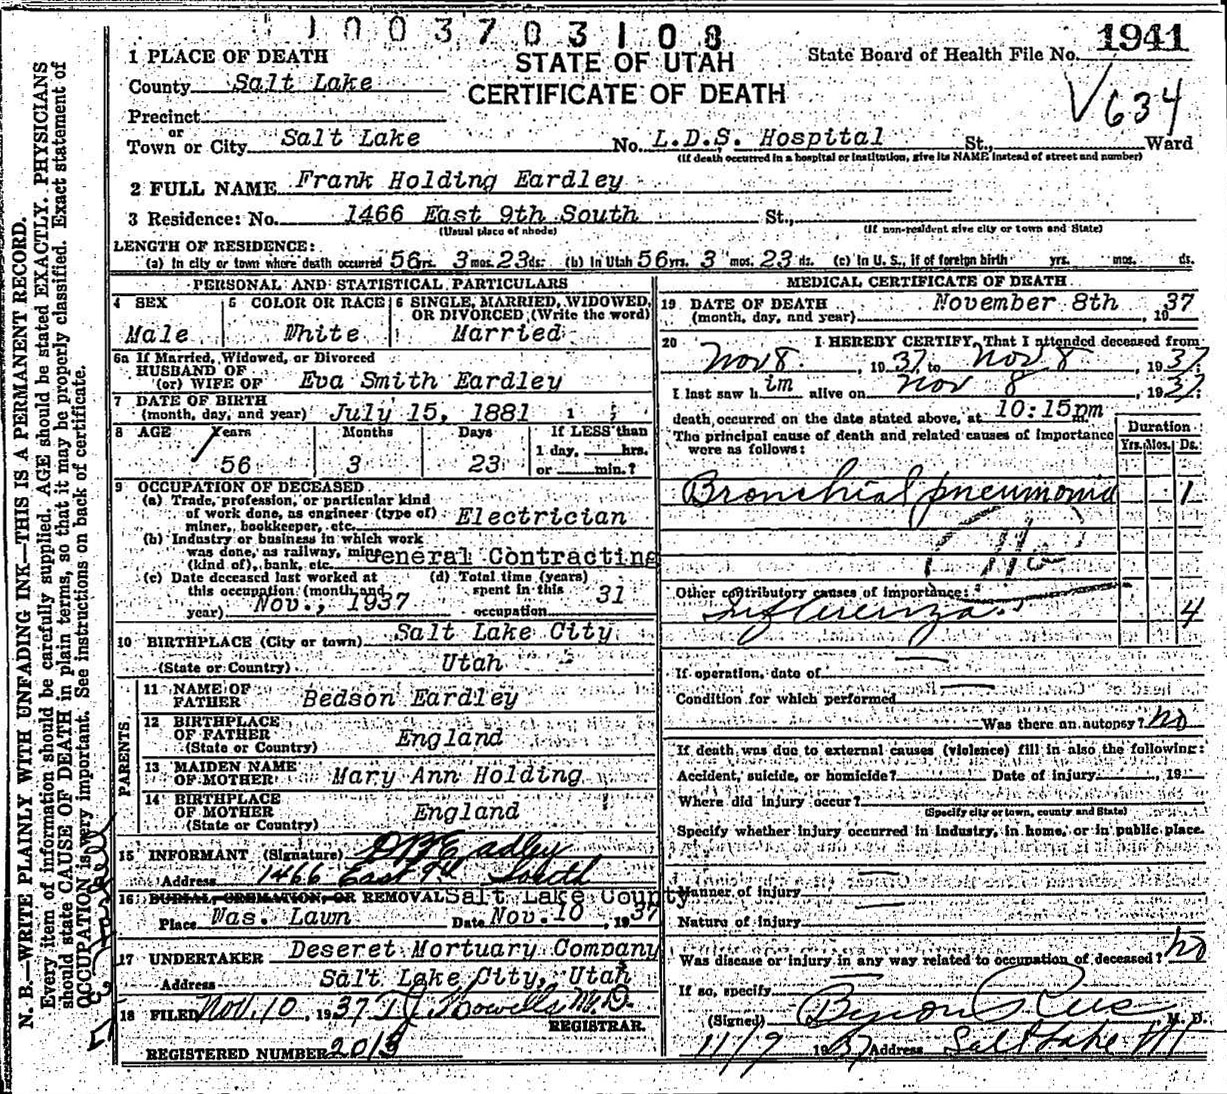 1003703108
1 PLACE OF DEATH
STATE OF UTAH
State Board of Health File No. 1941
County Salt Lake
CERTIFICATE OF DEATH
√634
Precinct
or
Town or City Salt Lake No. L.D.S. Hospital St., Ward
(If death occurred in a hospital or institution, give its NAME instead of street and number)
2 FULL NAME Frank Holding Eardley
3 Residence: No. 1466 East 9th South St.,
(Usual place of abode) (If non-resident give city or town and State)
LENGTH OF RESIDENCE:
(a) In city or town where death occurred 56 yrs. 3 mos. 23 ds. (b) In Utah 56 yrs. 3 mos. 23 ds. (c) In U. S., if of foreign birth yrs. mos. ds.
PERSONAL AND STATISTICAL PARTICULARS
4 SEX 5 COLOR OR RACE 6 SINGLE, MARRIED, WIDOWED, OR DIVORCED (Write the word)
Male White Married
6a If Married, Widowed, or Divorced
HUSBAND OF
(or) WIFE OF Eva Smith Eardley
7 DATE OF BIRTH
(month, day, and year) July 15, 1881
8 AGE Years Months Days If LESS than
1 day, hrs.
56 3 23 or min.?
9 OCCUPATION OF DECEASED
(a) Trade, profession, or particular kind
of work done, as engineer (type of)
miner, bookkeeper, etc. Electrician
(b) Industry or business in which work
was done, as railway, mine
(kind of), bank, etc. General Contracting
(c) Date deceased last worked at
this occupation (month and
year) Nov., 1937
(d) Total time (years)
spent in this
occupation 31
10 BIRTHPLACE (City or town) Salt Lake City
(State or Country) Utah
PARENTS.
11 NAME OF
FATHER Bedson Eardley
12 BIRTHPLACE
OF FATHER England
(State or Country)
13 MAIDEN NAME
OF MOTHER Mary Ann Holding
14 BIRTHPLACE
OF MOTHER England
(State or Country)
15 INFORMANT (Signature) Eardley
Address 1466 East 9th South
16 BURIAL, CREMATION, OR REMOVAL Salt Lake County
Place Was. Lawn Date Nov. 10, 1937
17 UNDERTAKER Deseret Mortuary Company
Address Salt Lake City, Utah
18 FILED Nov. 10, 1937 T J Howells M.D.
REGISTRAR.
REGISTERED NUMBER 2013
MEDICAL CERTIFICATE OF DEATH
19 DATE OF DEATH
(month, day, and year) November 8th, 1937
20 I HEREBY CERTIFY, That I attended deceased from
Nov 8., 1937 to Nov 8, 1937.
I last saw him alive on Nov 8, 1937.
death occurred on the date stated above, at 10:15pm m.
The principal cause of death and related causes of importance
were as follows:
Duration
Yrs. Mos. Ds.
Bronchial pneumonia 1
Other contributory causes of importance:
Influenza. 4
If operation, date of —
Condition for which performed —
Was there an autopsy? no
If death was due to external causes (violence) fill in also the following:
Accident, suicide, or homicide? Date of injury, 19
Where did injury occur?
(Specify city or town, county and State)
Specify whether injury occurred in industry, in home, or in public place.
Manner of injury
Nature of injury
Was disease or injury in any way related to occupation of deceased? no
If so, specify
(Signed) Byron Rees M. D.
11/9 1937 Address Salt Lake
N. B.—WRITE PLAINLY WITH UNFADING INK—THIS IS A PERMANENT RECORD.
Every item of information should be carefully supplied. AGE should be stated EXACTLY. PHYSICIANS
should state CAUSE OF DEATH in plain terms, so that it may be properly classified. Exact statement of
OCCUPATION is very important. See instructions on back of certificate.